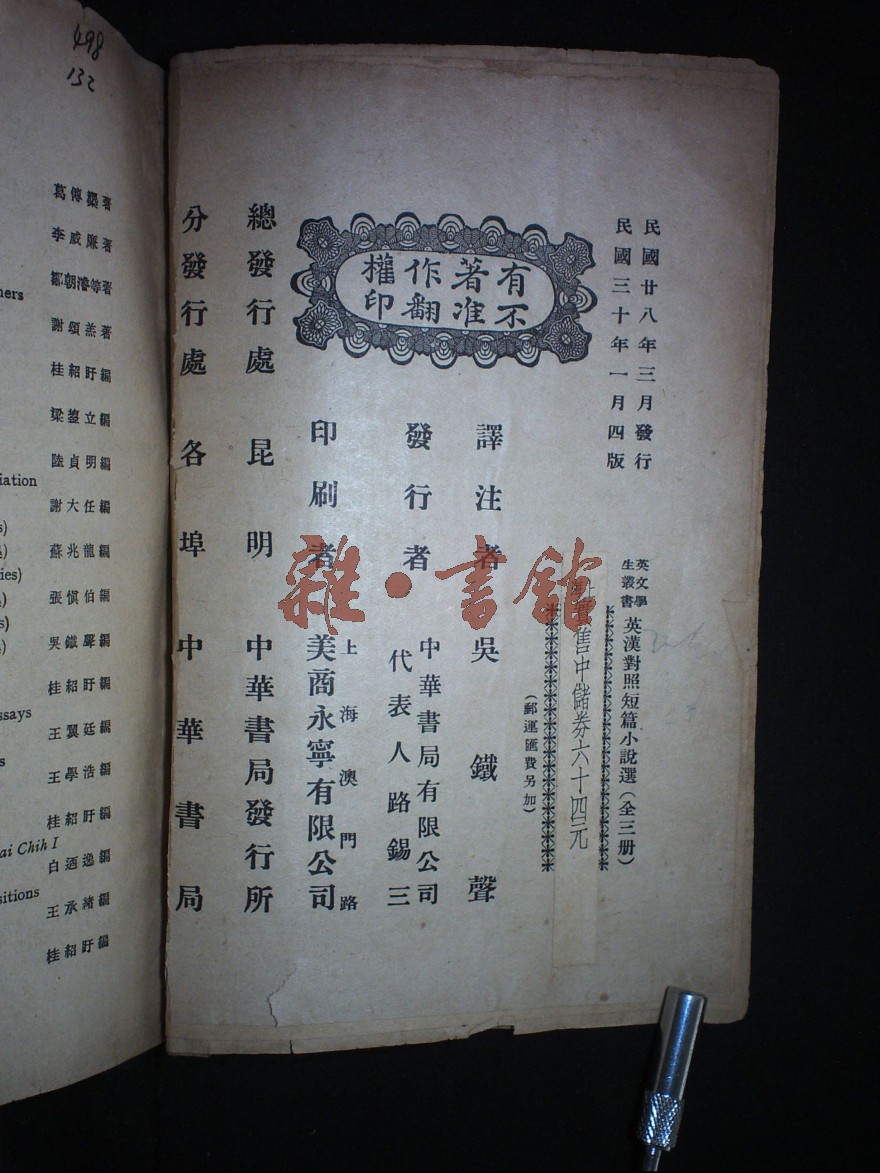 民國廿八年三月發行
民國三十年一月四版
英文學
生叢書
英漢對照短篇小說選（全三册）
實售中儲券六十四元
（郵運匯費另加）
有著作權
不准翻印
譯注者 吳鐵聲
發行者 中華書局有限公司
代表人路錫三
印刷者 上海澳門路
美商永寧有限公司
總發行處 昆明 中華書局發行所
分發行處 各埠中華書局
雜·書館
498
132
葛傳槼著
李威廉著
鄒朝濬等著
ners
謝頌羔著
桂紹盱編
梁鋆立編
陸貞明編
iation
謝大任編
s)
蘇兆龍編
)
ies)
張愼伯編
)
s)
吳鐵聲編
)
桂紹盱編
ssays
王翼廷編
s
王學浩編
桂紹盱編
ai Chih I
白迺逸編
sitions
王承緒編
桂紹盱編